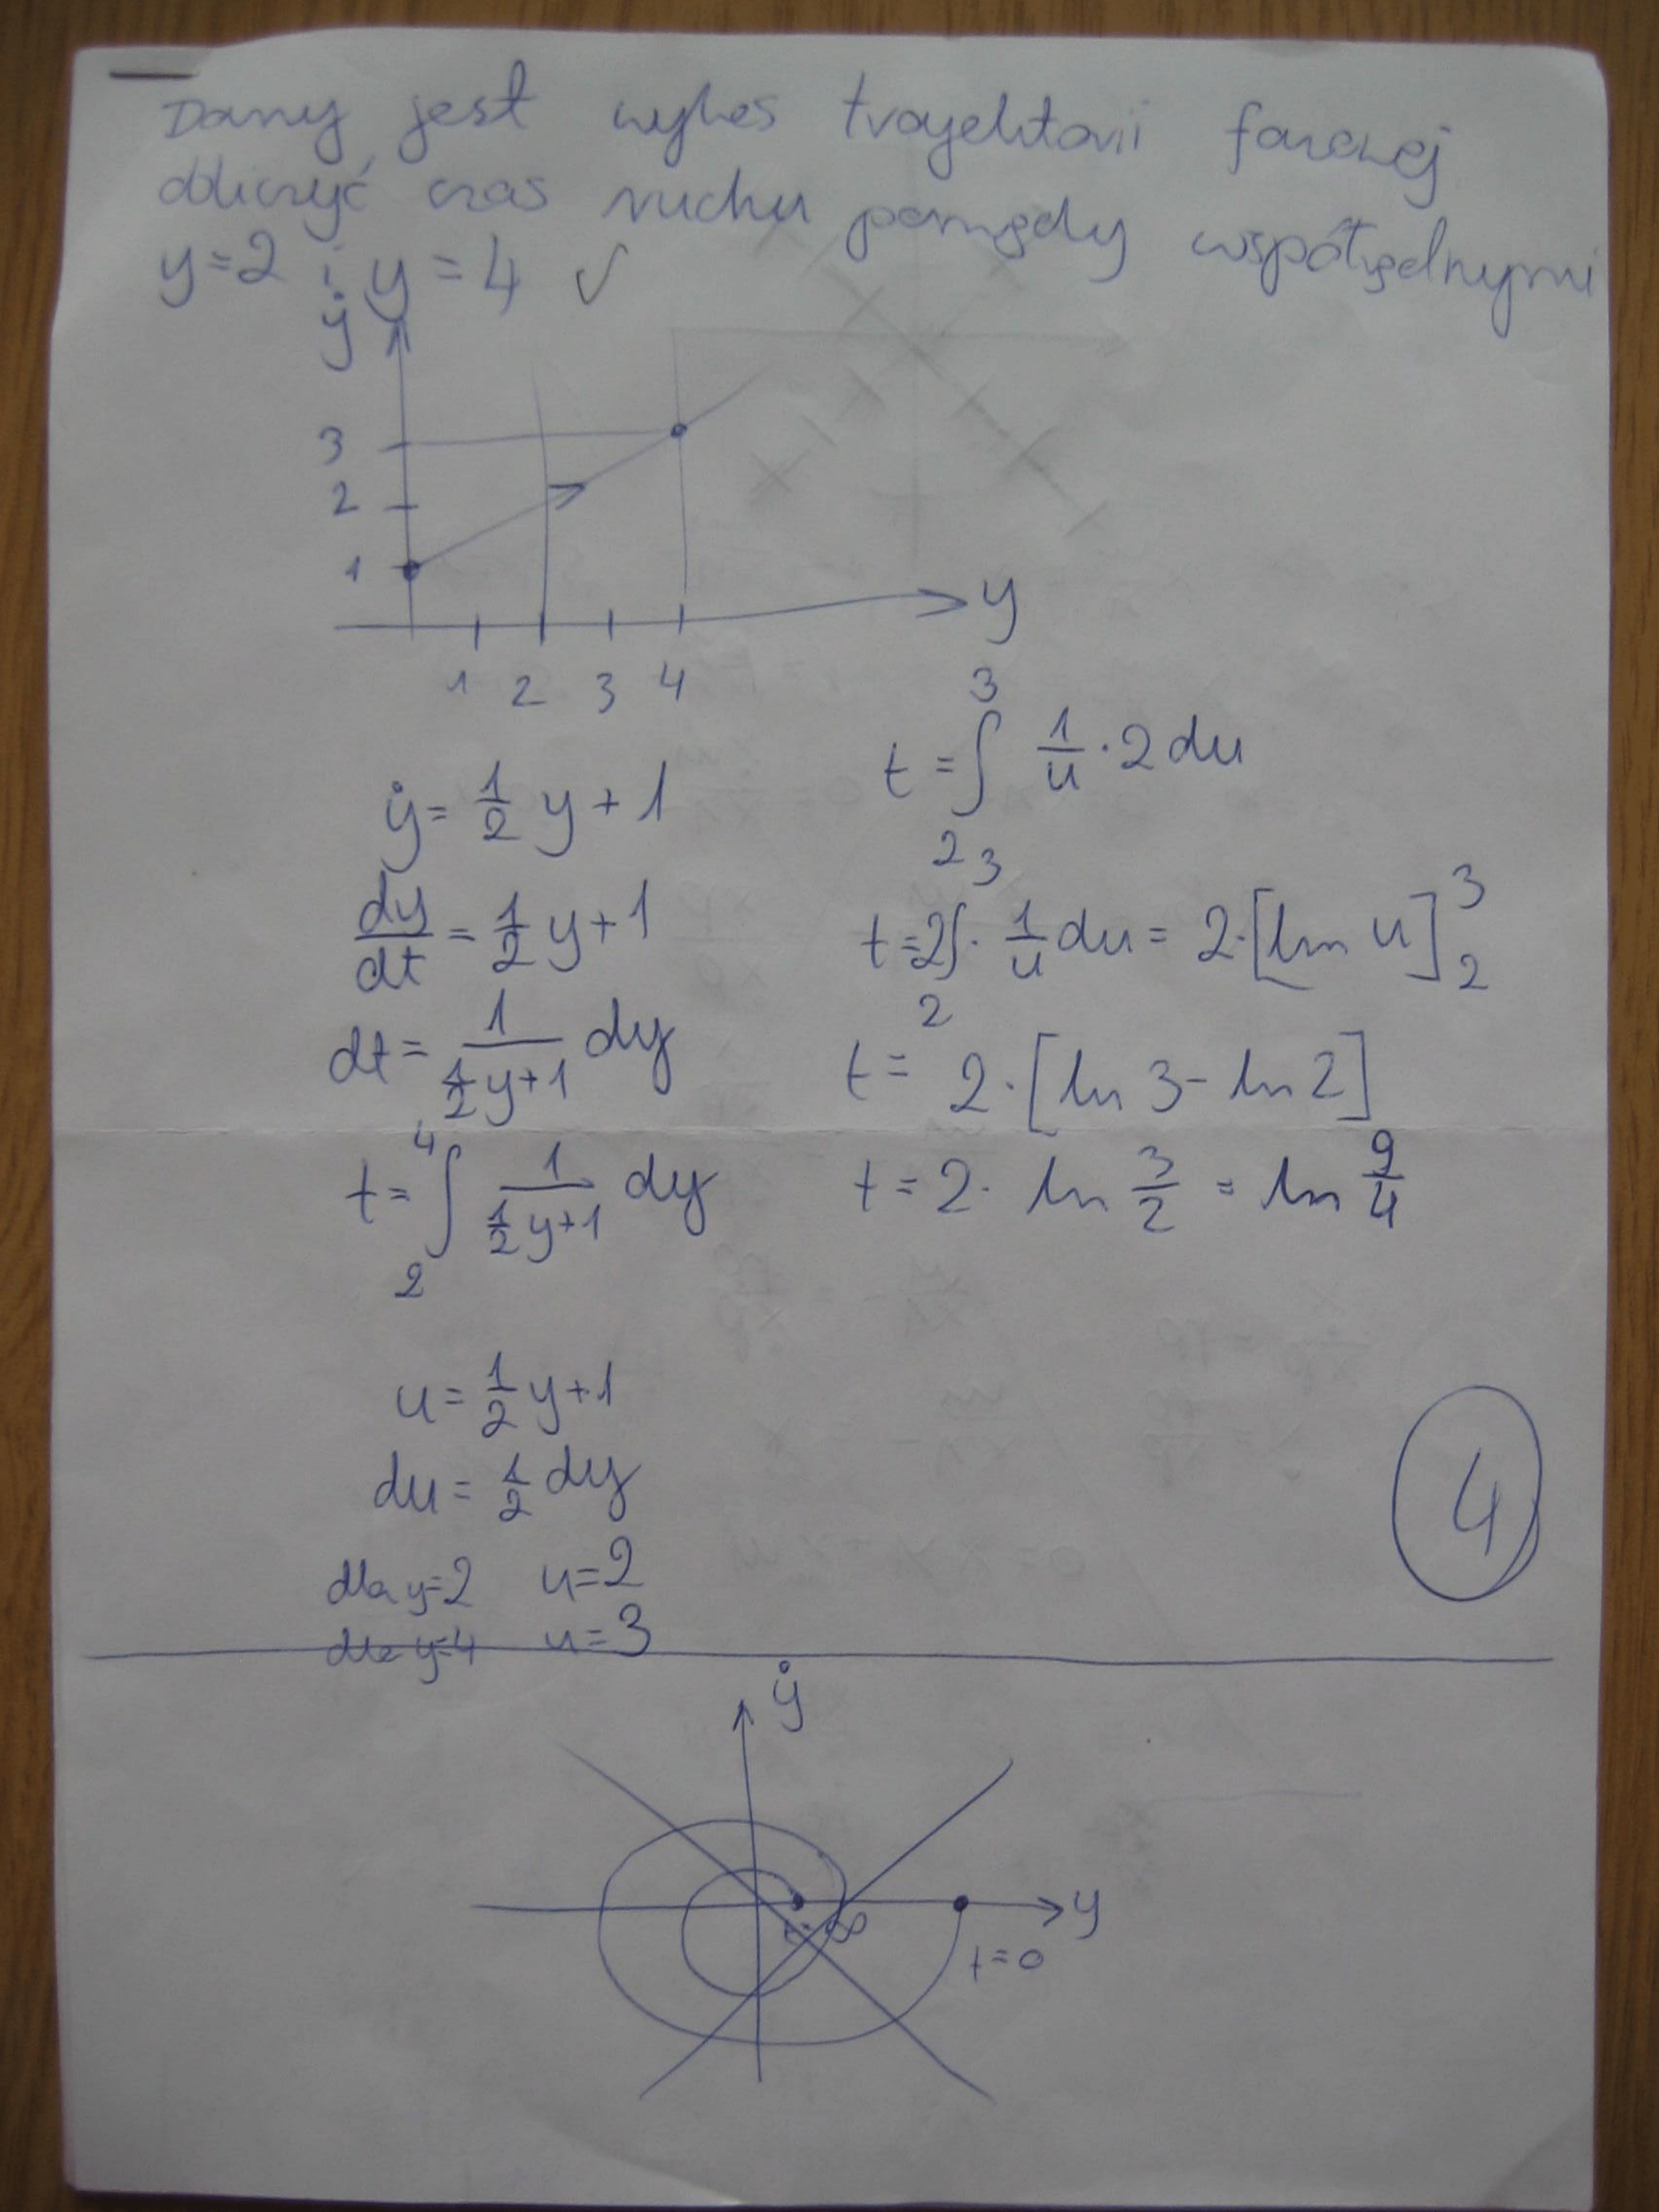 Dany jest wykres trajektorii fazowej
obliczyć czas ruchu pomiędzy współrzędnymi
y=2 i y=4 ✓
ẏ
3
2
1
y
1 2 3 4
ẏ = 1/2 y + 1
dy/dt = 1/2 y + 1
dt = 1/(1/2 y+1) dy
t = ∫_2^4 1/(1/2 y+1) dy
u = 1/2 y+1
du = 1/2 dy
dla y=2 u=2
dla y=4 u=3
t = ∫_2^3 1/u · 2 du
t = 2∫_2^3 · 1/u du = 2·[ln u]_2^3
t = 2·[ln 3 - ln 2]
t = 2· ln 3/2 = ln 9/4
4
ẏ
y
t=∞
t=0